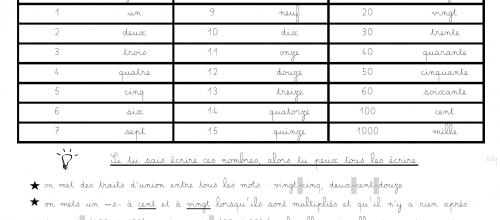 1 un 9 neuf 20 vingt
2 deux 10 dix 30 trente
3 trois 11 onze 40 quarante
4 quatre 12 douze 50 cinquante
5 cinq 13 treize 60 soixante
6 six 14 quatorze 100 cent
7 sept 15 quinze 1000 mille
Si tu sais écrire ces nombres, alors tu peux tous les écrire.
★ on met des traits d'union entre tous les mots : vingt-cinq, deux-cent-douze
★ on mets un -s- à cent et à vingt lorsqu'ils sont multipliés et qu'il n'y a rien après :